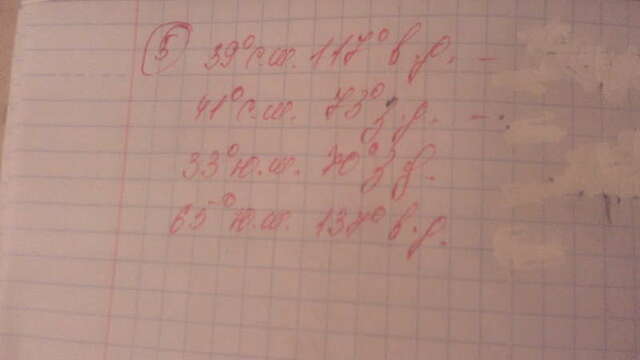 5 39° с.ш. 117° в.д. –
41° с.ш. 73° з.д. –.
33° ю.ш. 70° з.д.
65° ю.ш. 137° в.д.